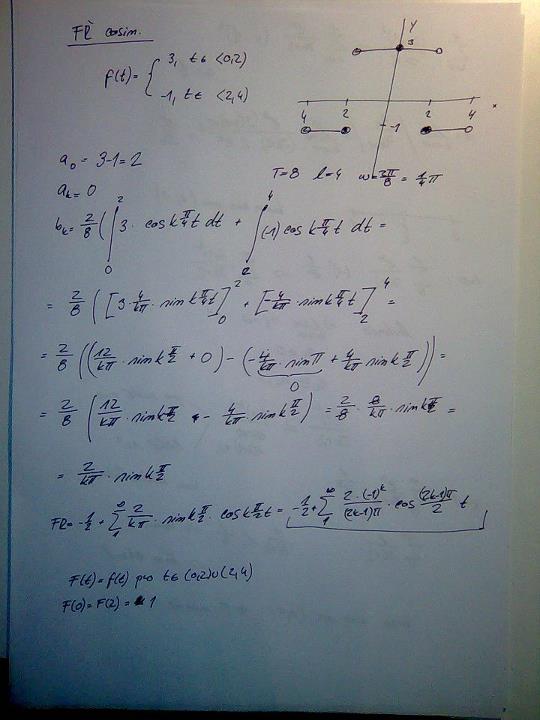 FŘ cosin.
f(t)= { 3, t∈ <0,2)
-1, t∈ <2,4)
y
3
4 2 2 4 x
-1
a₀ = 3-1=2
T=8 l=4 ω=2π/8 = 1/4 π
aₖ= 0
bₖ= 2/8 ( ∫₀² 3· cos k π/4 t dt + ∫₂⁴ (-1) cos k π/4 t dt =
= 2/8 ( [3· 4/kπ · sin k π/4 t]₀² + [-4/kπ · sin k π/4 t]₂⁴ =
= 2/8 ((12/kπ · sin k π/2 + 0) - (-4/kπ · sin π + 4/kπ sin k π/2)) =
0
= 2/8 (12/kπ · sin k π/2 - 4/kπ · sin k π/2) = 2/8 · 8/kπ · sin k π/2 =
= 2/kπ · sin k π/2
FŘ= -1/2 + ∑₁^∞ 2/kπ · sin k π/2 · cos k π/2 t = -1/2 + ∑₁^∞ 2·(-1)^k/(2k-1)π · cos (2k-1)π/2 t
F(t)= f(t) pro t∈ (0,2)∪(2,4)
F(0)= F(2) = 1